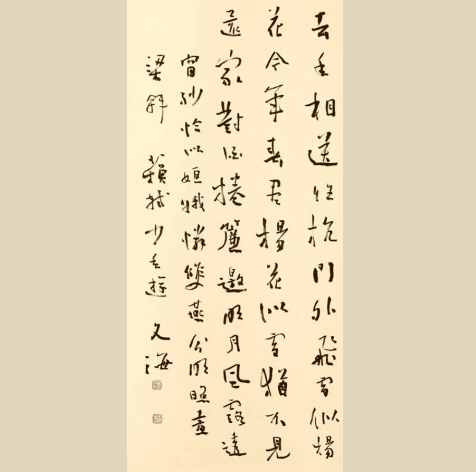 去年相送餘杭門外飛雪似楊
花今年春尽楊花似雪猶不見
還家對酒捲簾邀明月風露透
窗紗恰似姮娥憐雙燕分明照畫
梁斜 蘇軾少年遊 文海